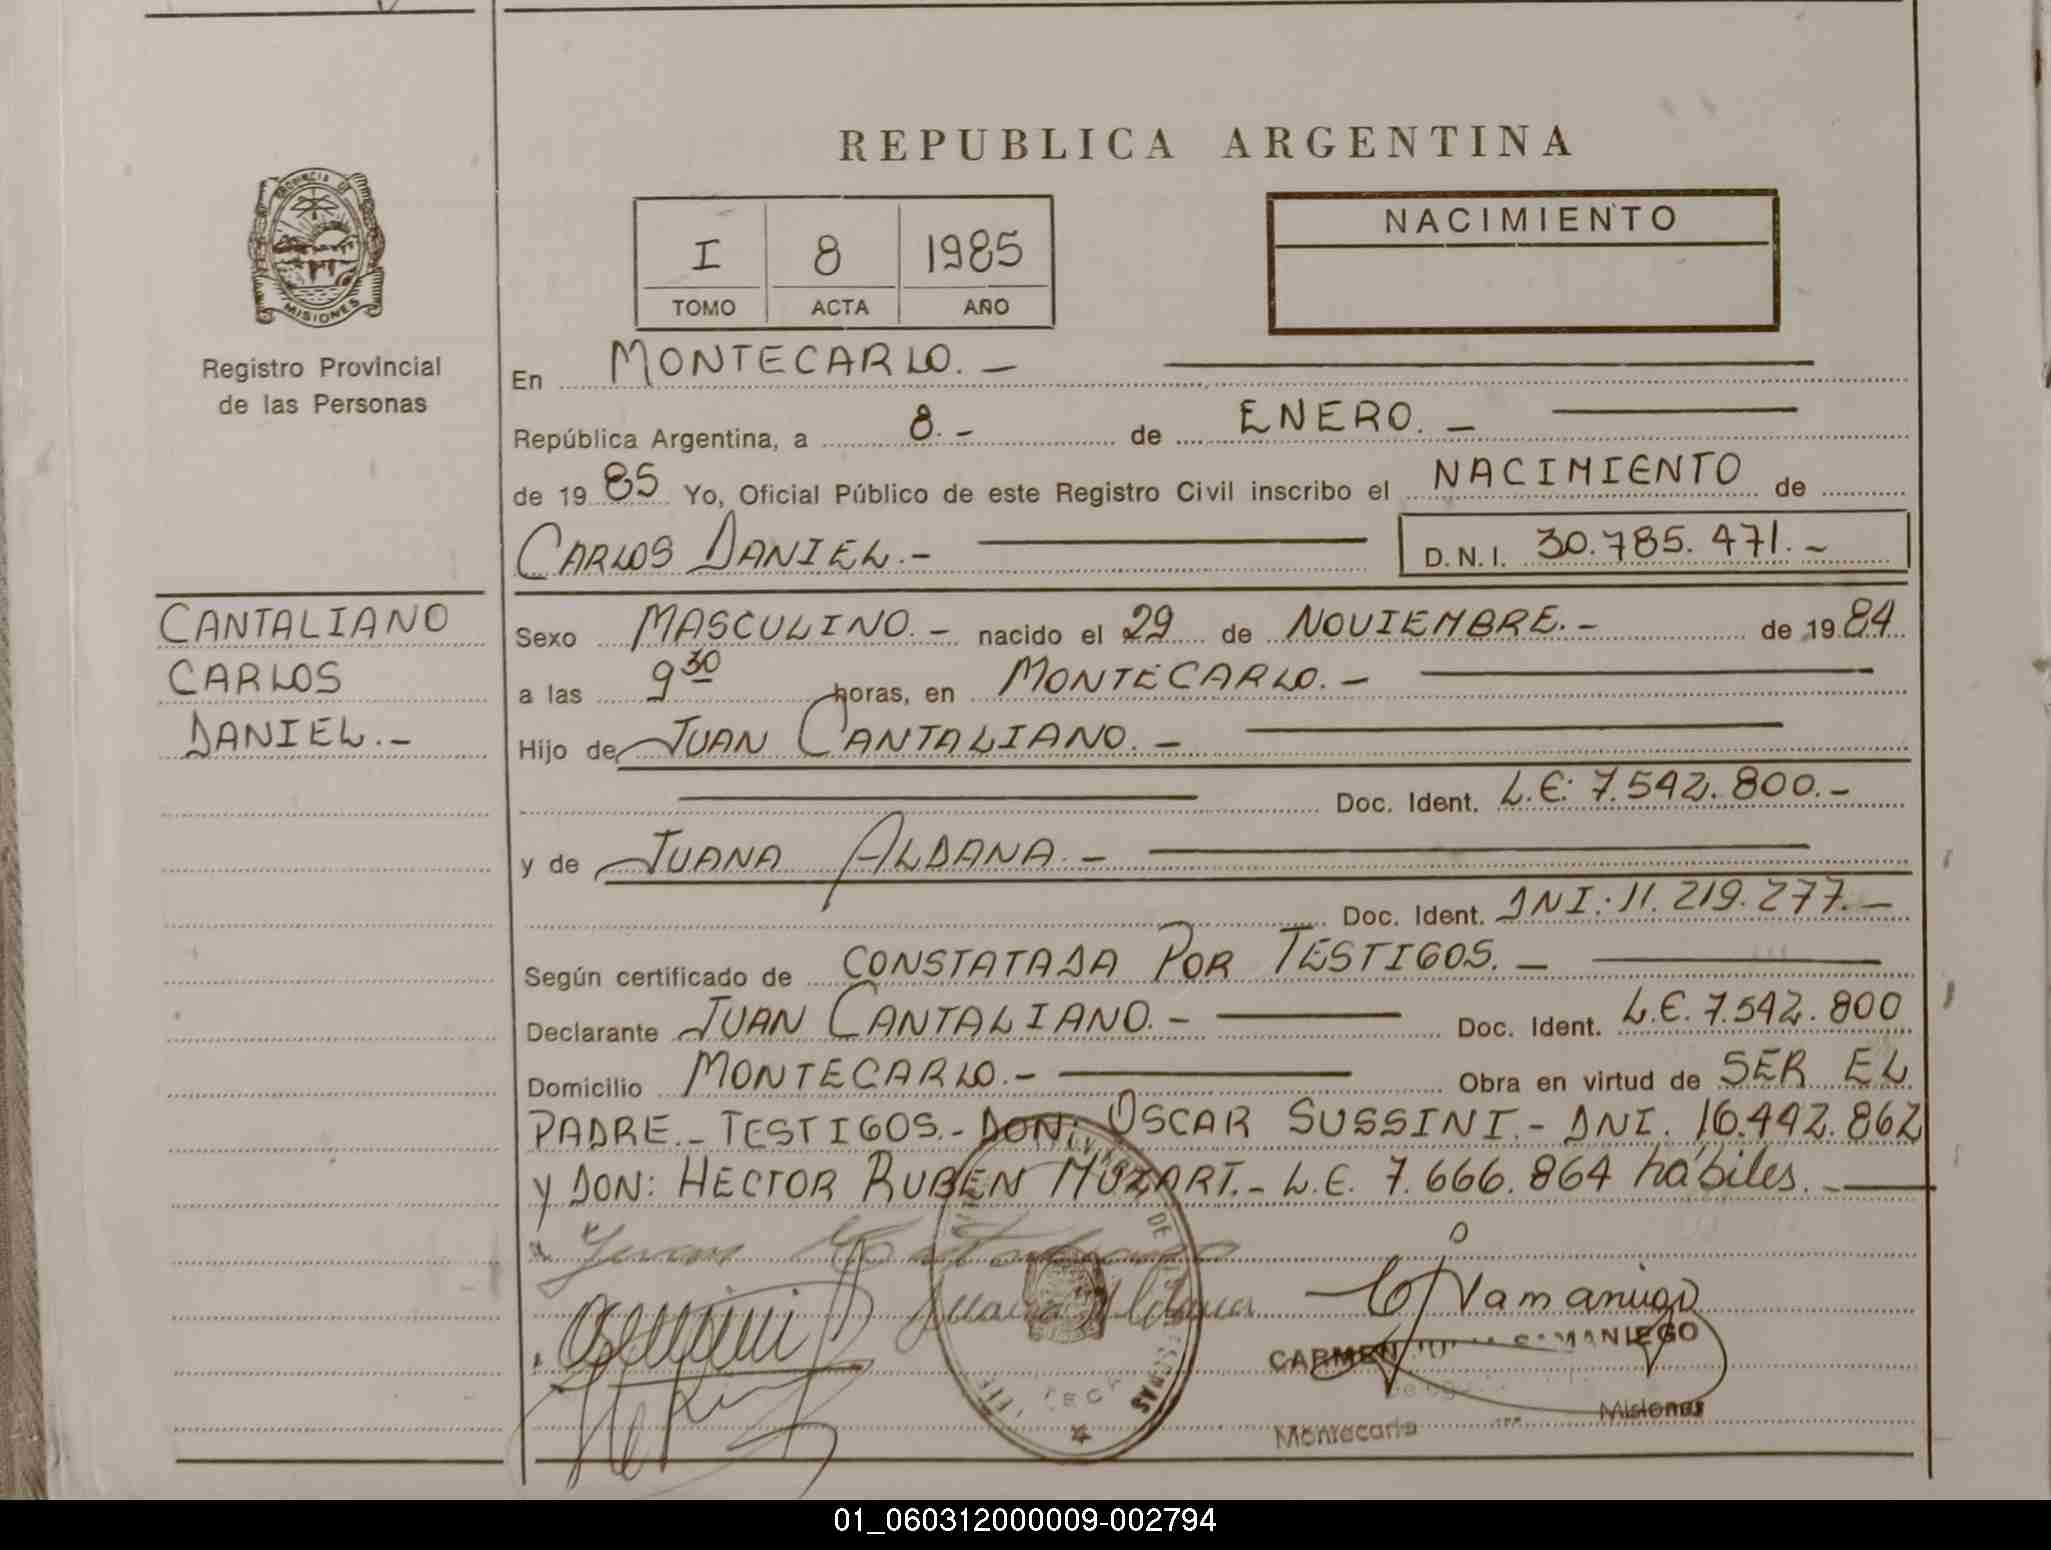 REPUBLICA ARGENTINA
PROVINCIA DE
MISIONES
Registro Provincial
de las Personas
I 8 1985
TOMO ACTA AÑO
NACIMIENTO
En MONTECARLO.—
República Argentina, a 8.- de ENERO.—
de 1985 Yo, Oficial Público de este Registro Civil inscribo el NACIMIENTO de
CARLOS DANIEL.- D.N.I. 30.785.471.-
CANTALIANO
CARLOS
DANIEL.-
Sexo MASCULINO.- nacido el 29 de NOVIEMBRE.- de 1984
a las 9 30 horas, en MONTECARLO.-
Hijo de JUAN CANTALIANO.-
Doc. Ident. L.E: 7.542.800.-
y de JUANA ALDANA.-
Doc. Ident. DNI: 11.219.277.-
Según certificado de CONSTATADA POR TESTIGOS.-
Declarante JUAN CANTALIANO.- Doc. Ident. L.E. 7.542.800
Domicilio MONTECARLO.- Obra en virtud de SER EL
PADRE.- TESTIGOS.- DON: OSCAR SUSSINI.- DNI. 16.442.862
y DON: HECTOR RUBEN MUZART.- L.E. 7.666.864 hábiles.-
Juana Aldana
CARMEN SAMANIEGO
Montecarlo Misiones
01_060312000009-002794